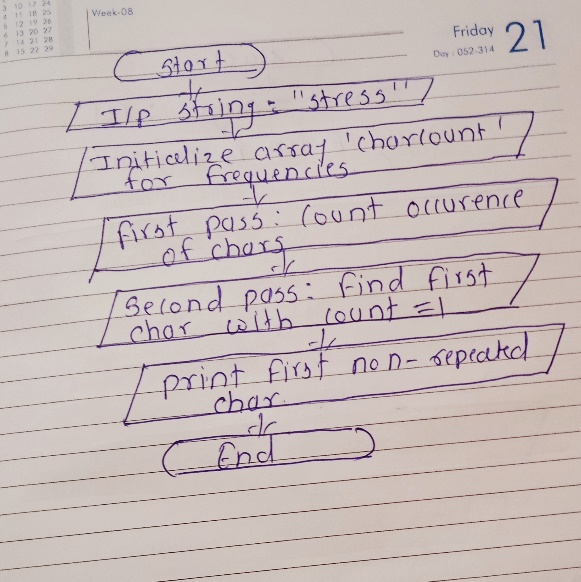 3 10 17 24
4 11 18 25
5 12 19 26
6 13 20 27
7 14 21 28
8 15 22 29
Week-08
Friday 21
Day : 052-314
Start
I/p string = "stress"
Initialize array 'charcount'
for frequencies
First pass: Count occurence
of chars
Second pass: Find first
char with count =1
print first non-repeated
char.
End